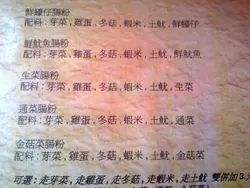 鮮蠔仔腸粉
配料:芽菜,雞蛋,冬菇,蝦米,土魷,鮮蠔仔
鮮魷魚腸粉
配料:芽菜,雞蛋,冬菇,蝦米,土魷,鮮魷魚
生菜腸粉
配料:芽菜,雞蛋,冬菇,蝦米,土魷,生菜
通菜腸粉
配料:芽菜,雞蛋,冬菇,蝦米,土魷,通菜
金菇菜腸粉
配料:芽菜,雞蛋,冬菇,蝦米,土魷,金菇菜
可選:走芽菜,走雞蛋,走冬菇,走蝦米,走土魷 雙併加3.